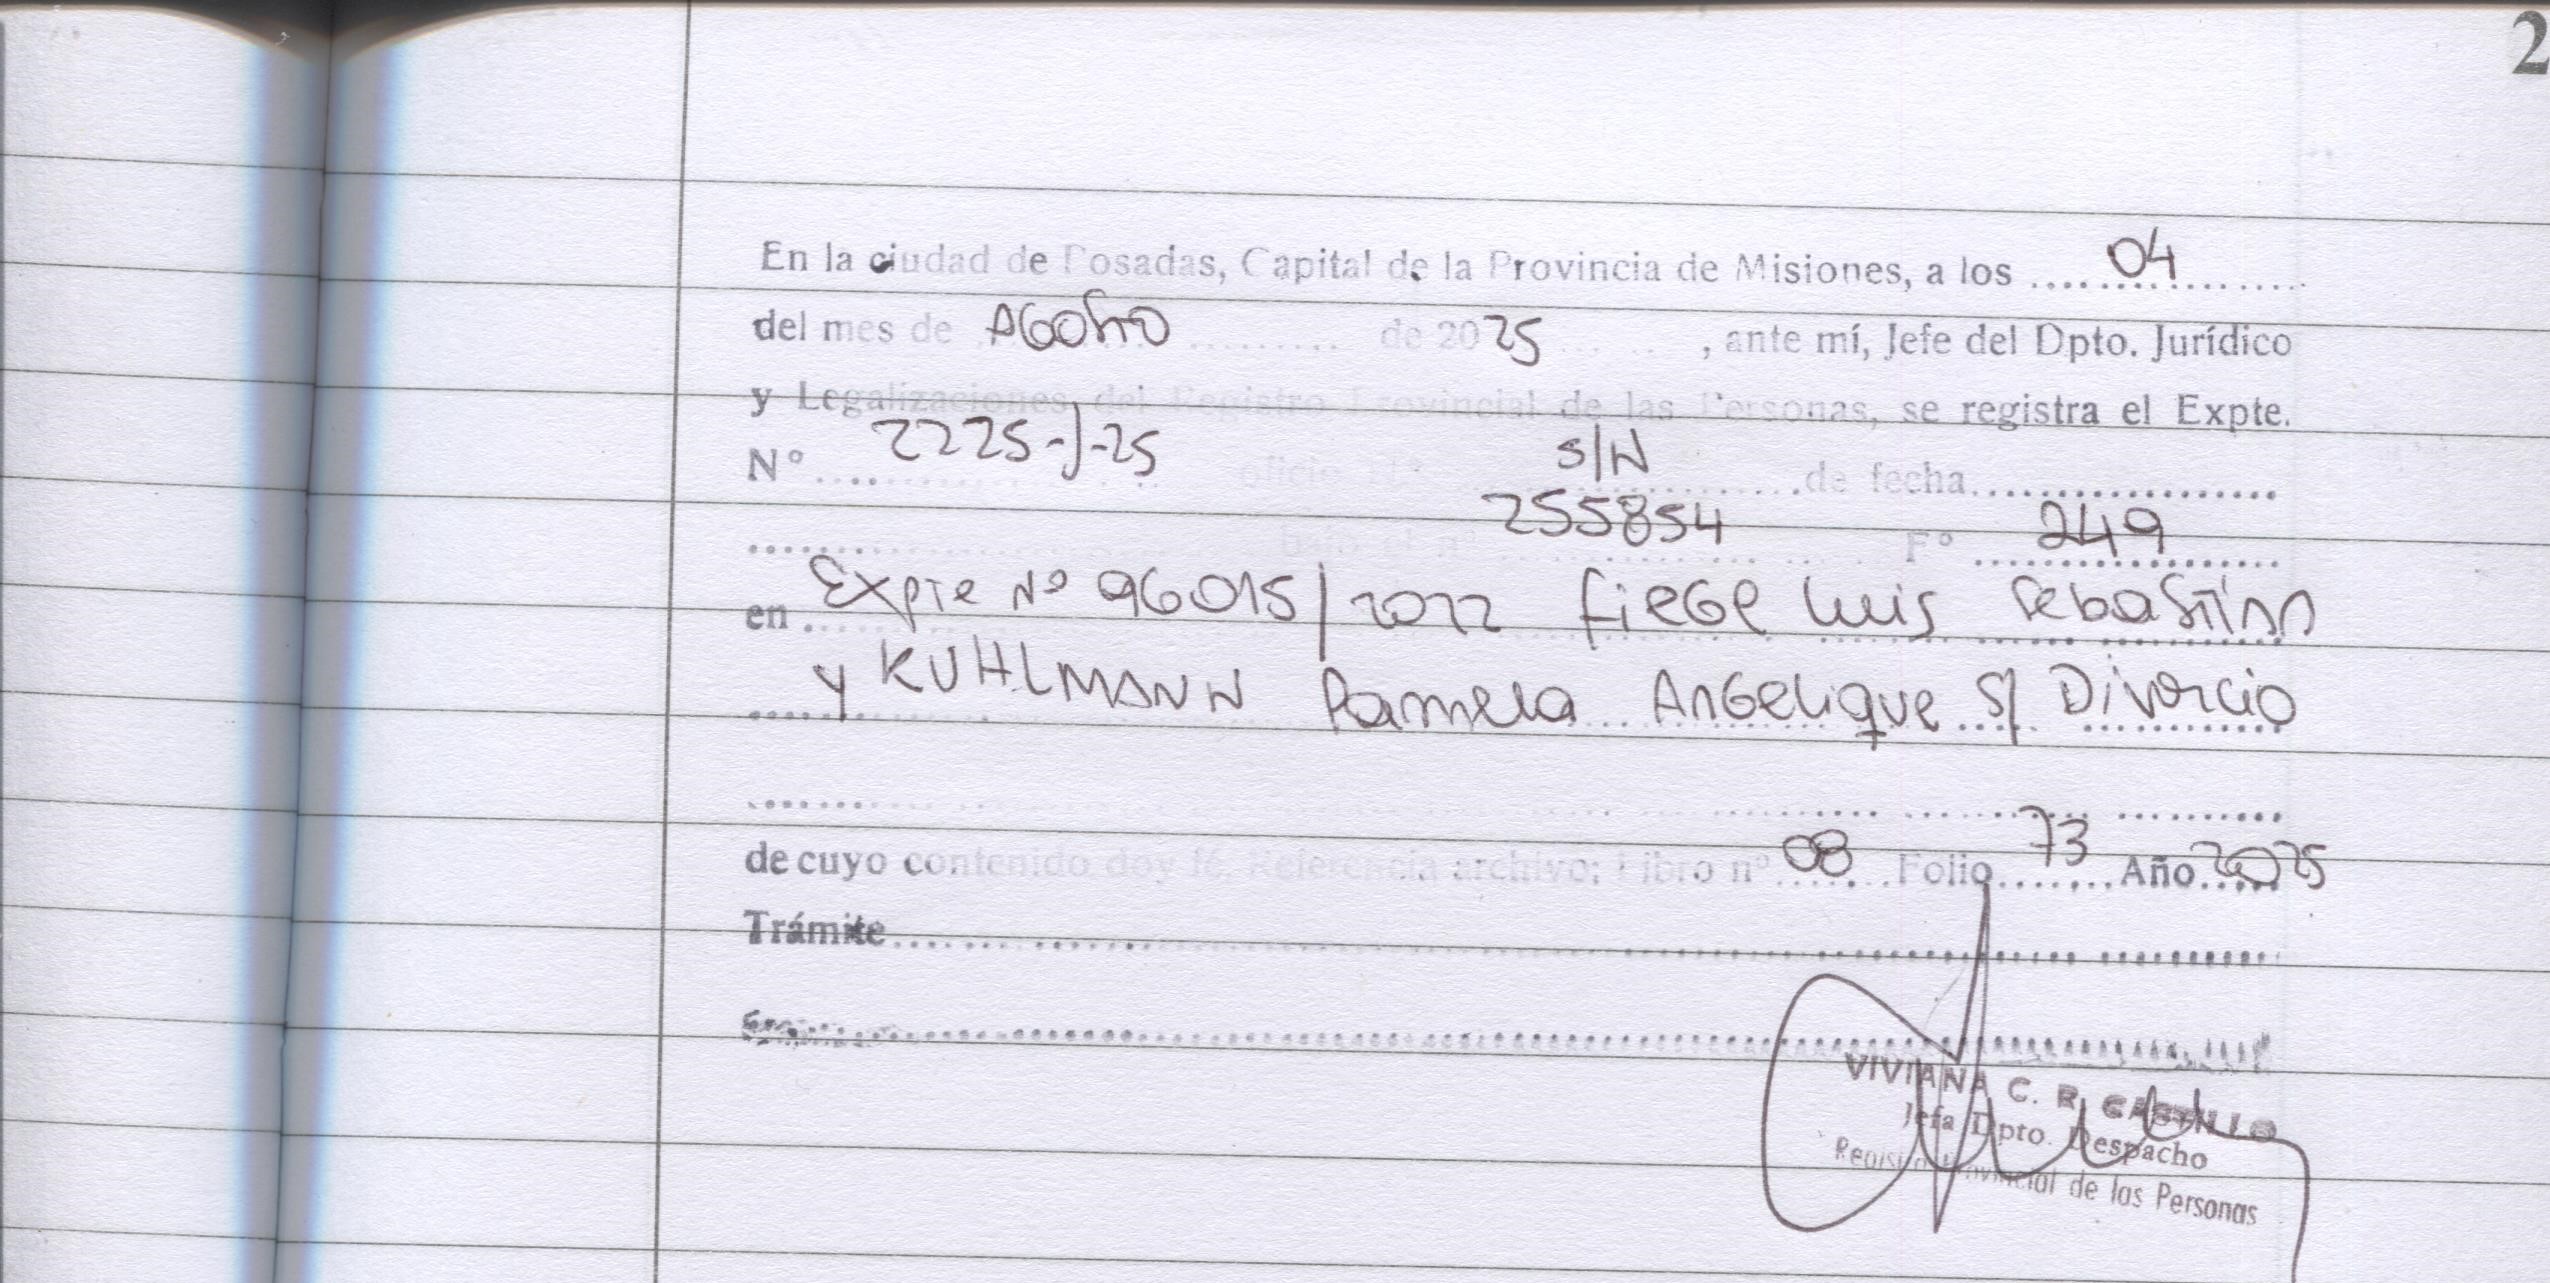 2
En la ciudad de Posadas, Capital de la Provincia de Misiones, a los 04
del mes de AGOSTO de 2025, ante mí, Jefe del Dpto. Jurídico
y Legalizaciones del Registro Provincial de las Personas, se registra el Expte.
N° 2225-J-25 oficio N° S/N de fecha
bajo el n° 255854 F° 249
en Expte Nº 96015/2022 fieGe Luis Sebastián
y KUHLMANN Pamela AnGelique S/ Divorcio
de cuyo contenido doy fé. Referencia archivo: Libro n° 08 Folio 73 Año 2025
Trámite
VIVIANA C. R. CASTILLO
Jefa Dpto. Despacho
Registro Provincial de las Personas